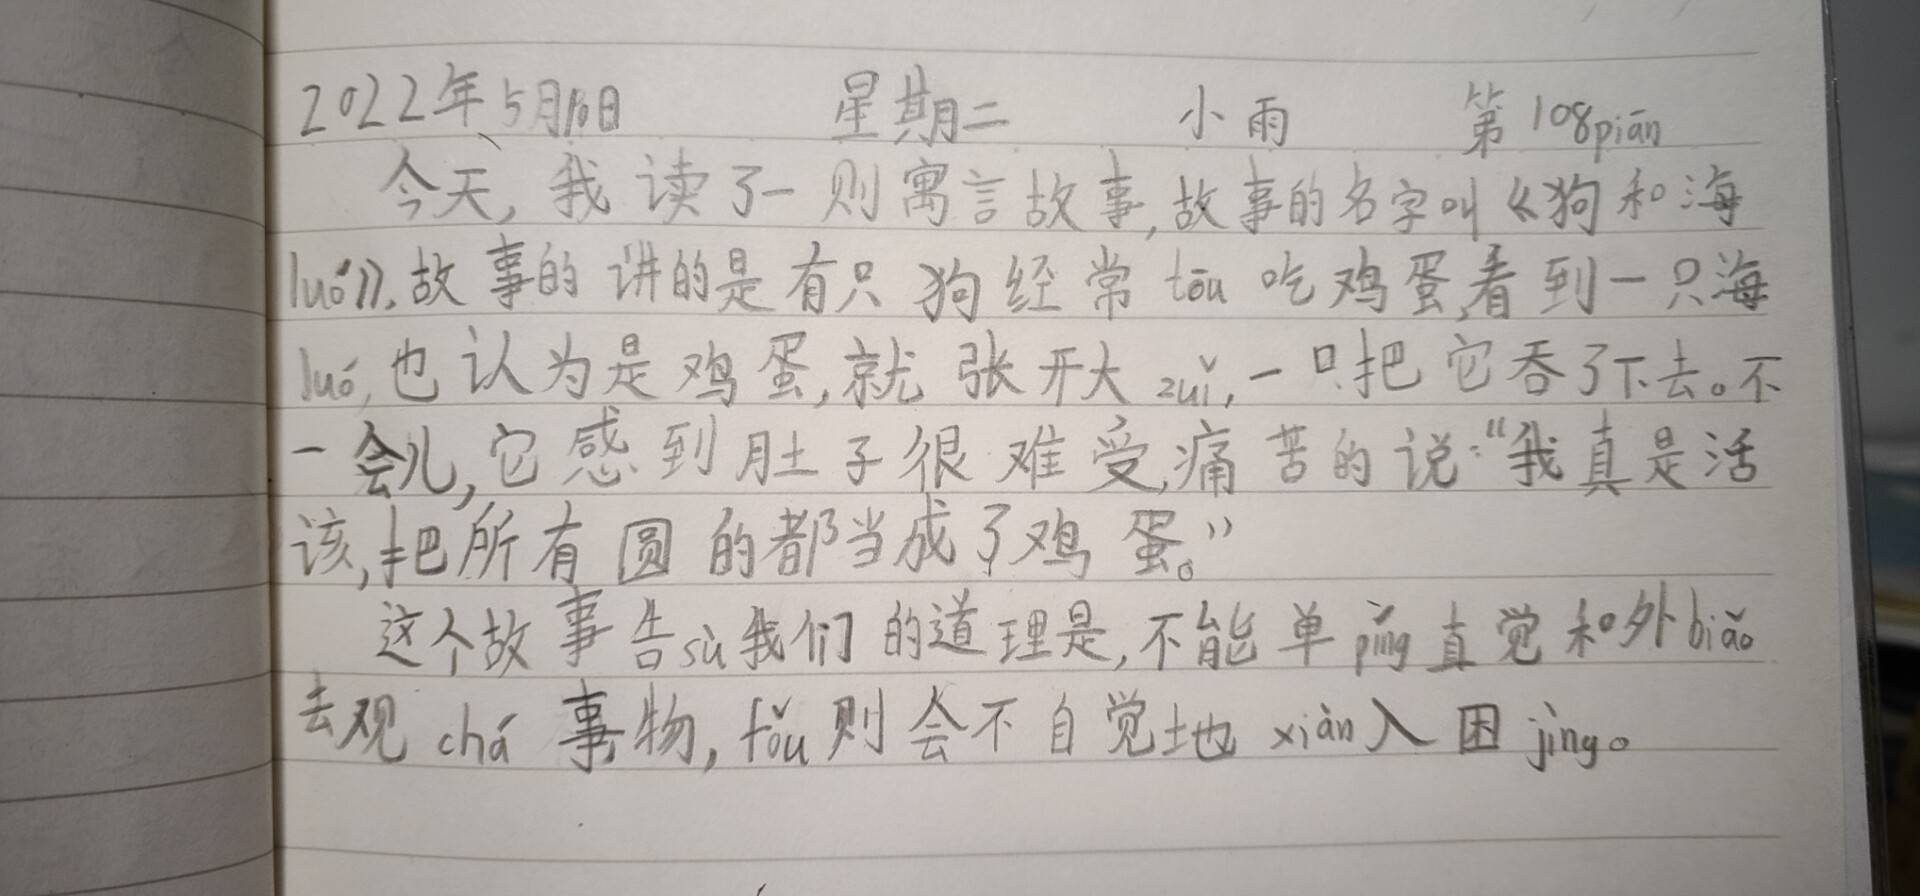 2022年5月10日 星期二 小雨 第108piān
今天,我读了一则寓言故事,故事的名字叫《狗和海
luó》.故事的讲的是有只狗经常tōu吃鸡蛋,看到一只海
luó,也认为是鸡蛋,就张开大zuǐ,一只把它吞了下去。不
一会儿,它感到肚子很难受,痛苦的说:“我真是活
该,把所有圆的都当成了鸡蛋。”
这个故事告sù我们的道理是,不能单píng直觉和外biǎo
去观chá事物,fǒu则会不自觉地xiàn入困jìng。